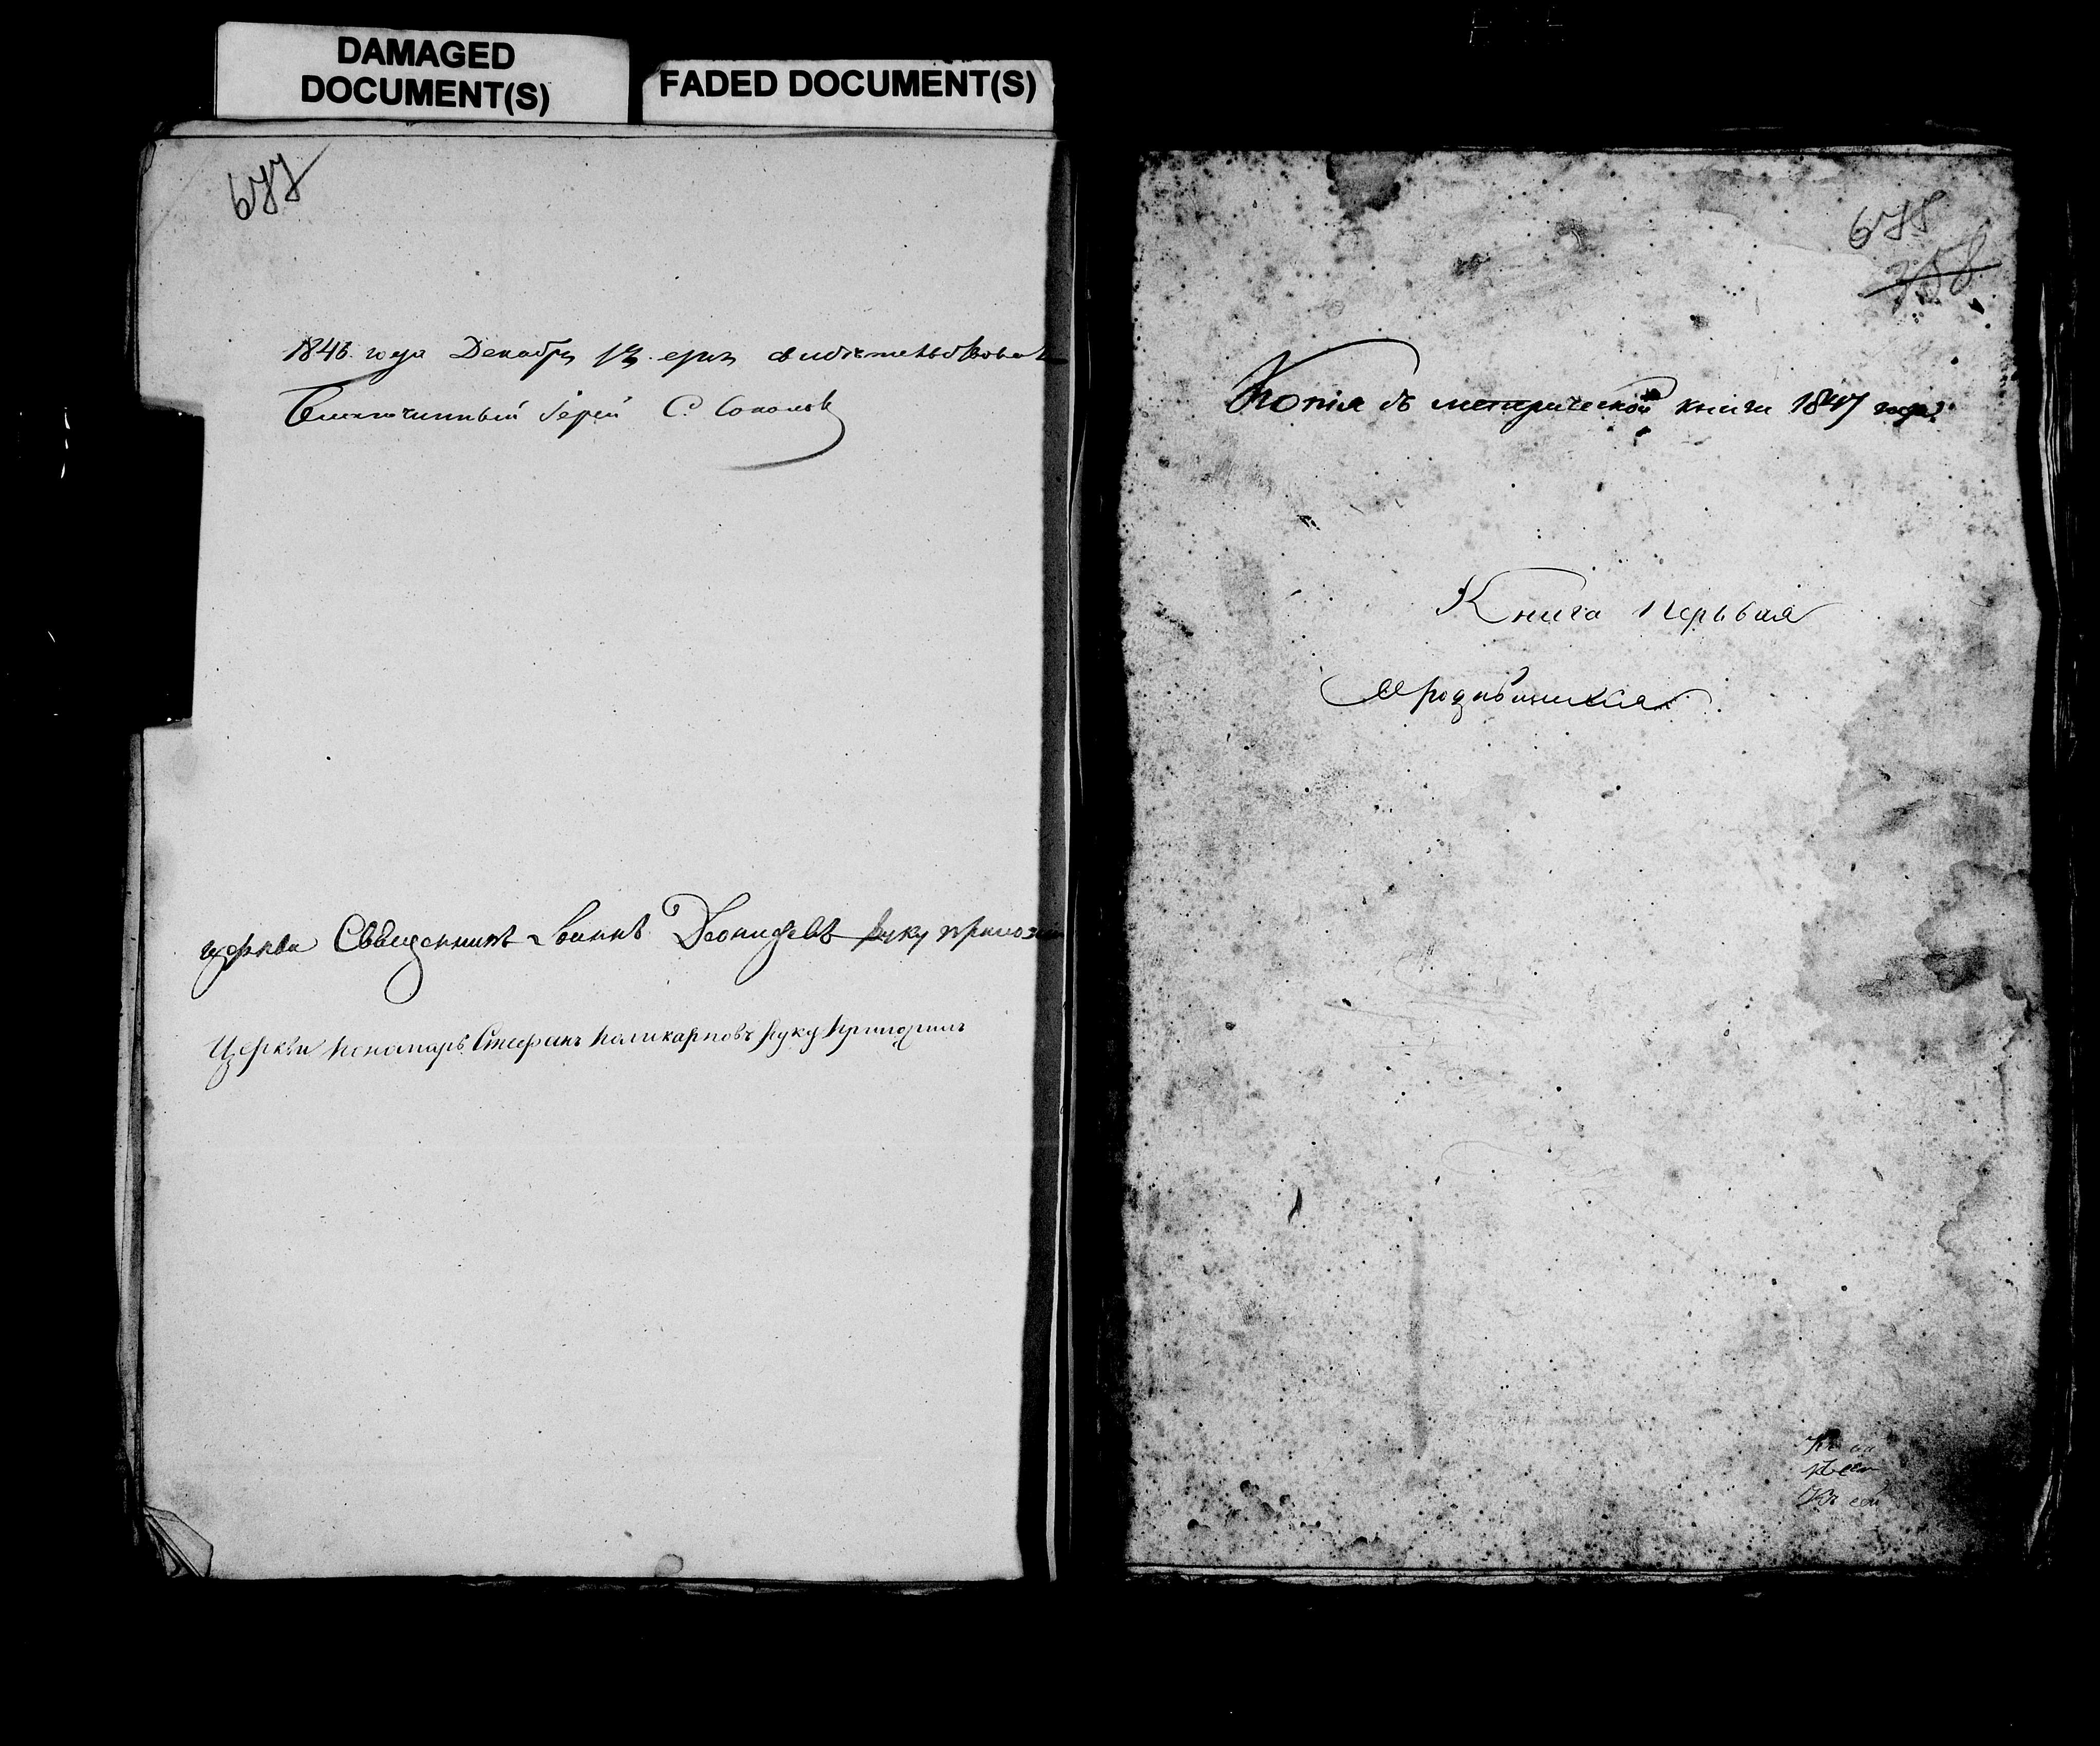 DAMAGED
DOCUMENT(S)
FADED DOCUMENT(S)
677
1846 года Декабря сего свидѣтельствовалъ
Благочинный Іерей С. Соколовъ
церкви Священникъ Іоаннъ Леонидовъ руку приложи
Церкви пономарь Стефанъ Поликарповъ руку приложилъ
678
358
Копія съ метрической книги 1847 года
Книга первая